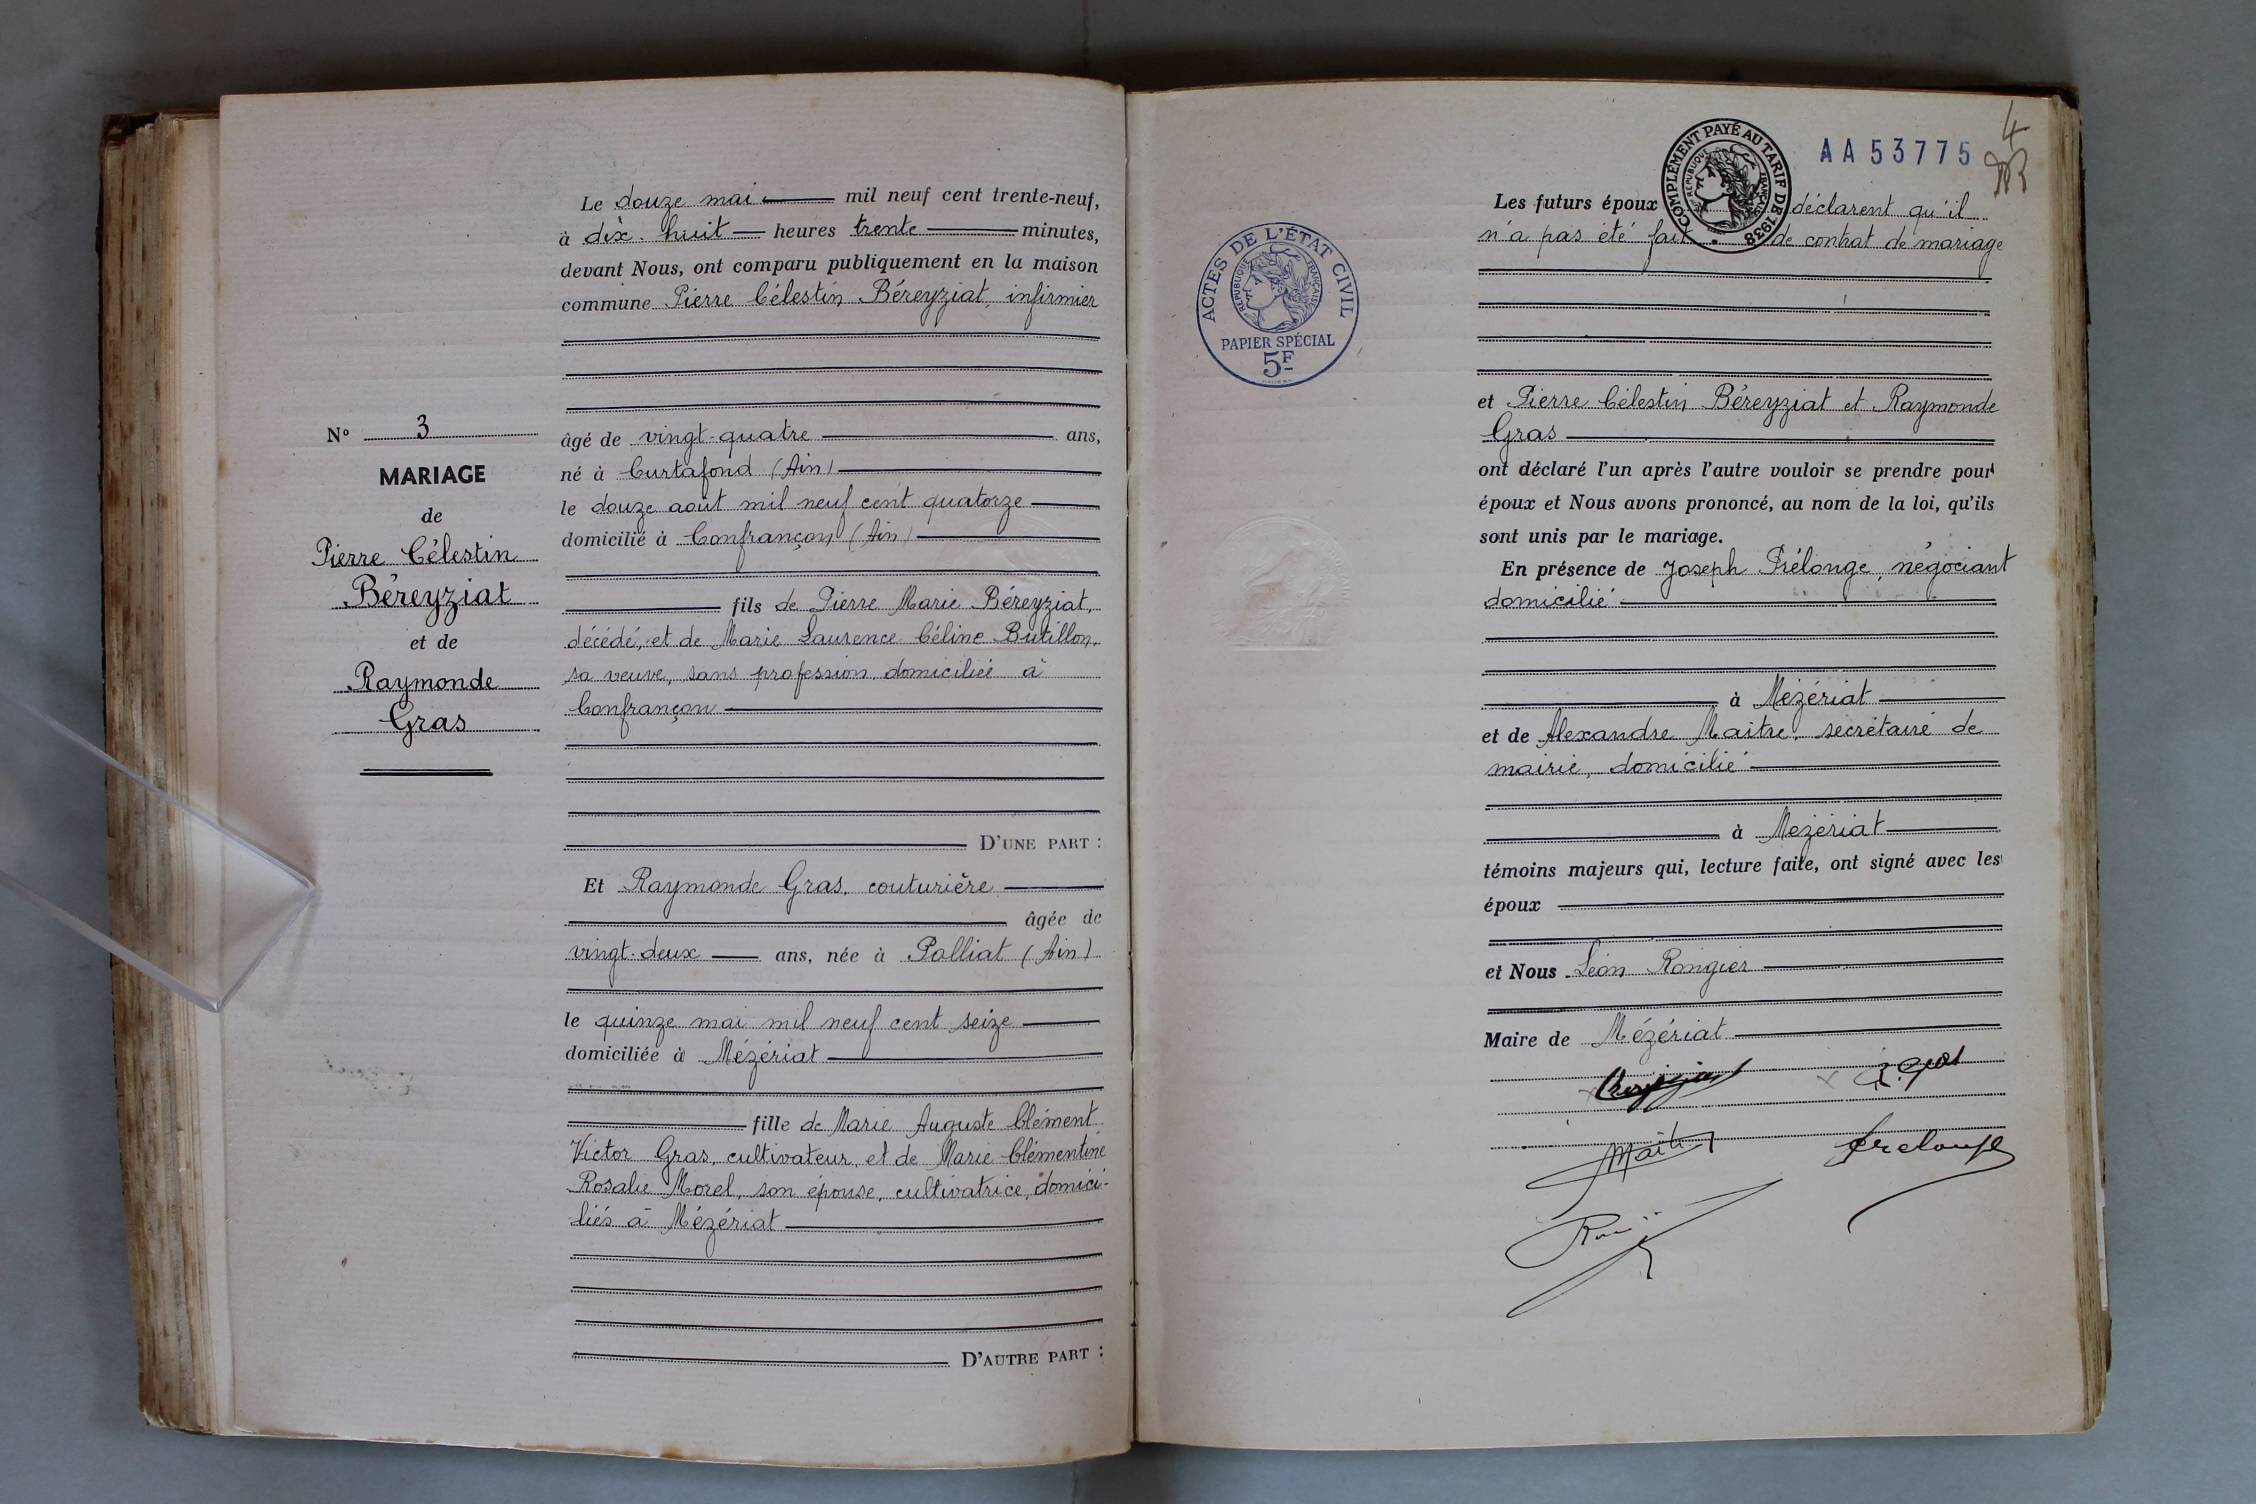 Le douze mai mil neuf cent trente-neuf,
à dix-huit heures trente minutes,
devant Nous, ont comparu publiquement en la maison
commune Pierre Célestin Béreyziat, infirmier
âgé de vingt-quatre ans,
né à Curtafond (Ain)
le douze août mil neuf cent quatorze
domicilié à Confrançon (Ain)
fils de Pierre Marie Béreyziat,
décédé, et de Marie Laurence Céline Butillon,
sa veuve, sans profession, domiciliée à
Confrançon
D'UNE PART :
Et Raymonde Gras, couturière
âgée de
vingt-deux ans, née à Polliat (Ain)
le quinze mai mil neuf cent seize
domiciliée à Mézériat
fille de Marie Auguste Clément
Victor Gras, cultivateur, et de Marie Clémentine
Rosalie Morel, son épouse, cultivatrice, domici-
liés à Mézériat
D'AUTRE PART :
N° 3
MARIAGE
de
Pierre Célestin
Béreyziat
et de
Raymonde
Gras
4
AA53775
COMPLÉMENT PAYÉ AU TARIF DE 1938
RÉPUBLIQUE FRANÇAISE
ACTES DE L'ÉTAT CIVIL
RÉPUBLIQUE FRANÇAISE
PAPIER SPÉCIAL
5F
Les futurs époux déclarent qu'il
n'a pas été fait de contrat de mariage
et Pierre Célestin Béreyziat et Raymonde
Gras
ont déclaré l'un après l'autre vouloir se prendre pour
époux et Nous avons prononcé, au nom de la loi, qu'ils
sont unis par le mariage.
En présence de Joseph Prélonge, négociant
domicilié
à Mézériat
et de Alexandre Maître, secrétaire de
mairie, domicilié
à Mézériat
témoins majeurs qui, lecture faite, ont signé avec les
époux
et Nous Léon Rongier
Maire de Mézériat
R. Gras
Maître
Prelonge